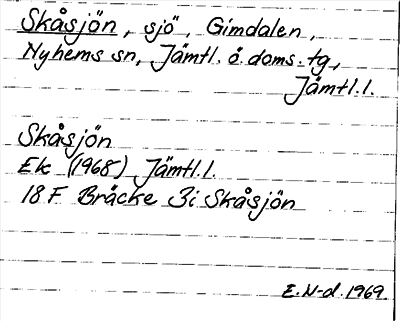 Skåsjön, sjö, Gimdalen,
Nyhems sn, Jämtl. ö. doms. tg,
Jämtl. l.
Skåsjön
Ek (1968) Jämtl. l.
18 F Bräcke 3i Skåsjön
E. N-d. 1969.